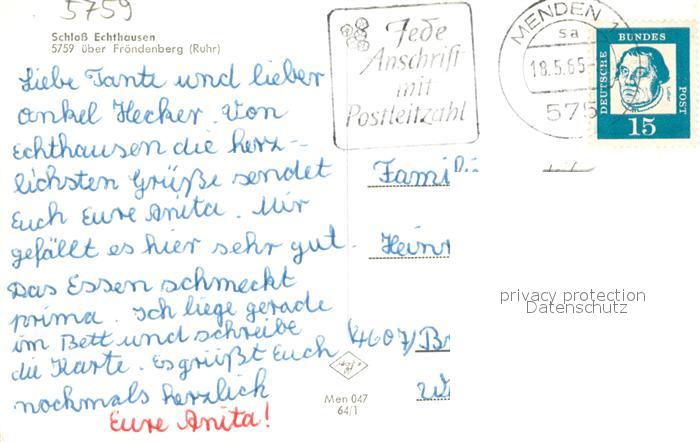 5759
Schloß Echthausen
5759 über Fröndenberg (Ruhr)
Liebe Tante und lieber
Onkel Hecker. Von
Echthausen die herz-
lichsten Grüße sendet
Euch Eure Anita. Mir
gefällt es hier sehr gut.
Das Essen schmeckt
prima. Ich liege gerade
im Bett und schreibe
die Karte. Es grüßt Euch
nochmals herzlich
Eure Anita!
Men 047
64/1
Jede
Anschrift
mit
Postleitzahl
MENDEN 1
sa
18.5.65-
575
DEUTSCHE BUNDES POST
15
Fami
Heinr
(4607) Br
privacy protection
Datenschutz